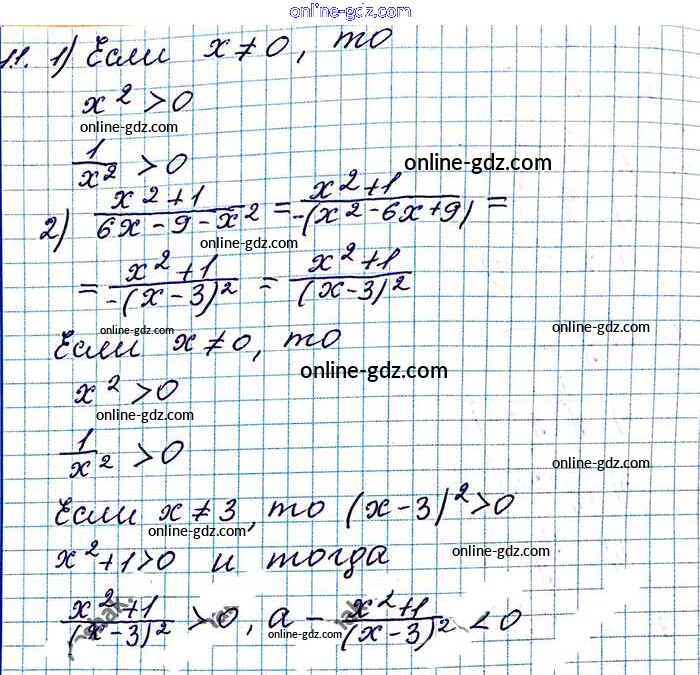 online-gdz.com
11. 1) Если x≠0, то
x²>0
online-gdz.com
1/x² >0
online-gdz.com
2) (x²+1)/(6x-9-x²) = (x²+1)/(-(x²-6x+9)) =
online-gdz.com
= (x²+1)/(-(x-3)²) = (x²+1)/((x-3)²)
online-gdz.com
online-gdz.com
Если x≠0, то
online-gdz.com
x²>0
online-gdz.com
1/x² >0
online-gdz.com
Если x≠3, то (x-3)²>0
online-gdz.com
x²+1>0 и тогда
online-gdz.com
(x²+1)/((x-3)²) >0, а - (x²+1)/((x-3)²) <0
online-gdz.com